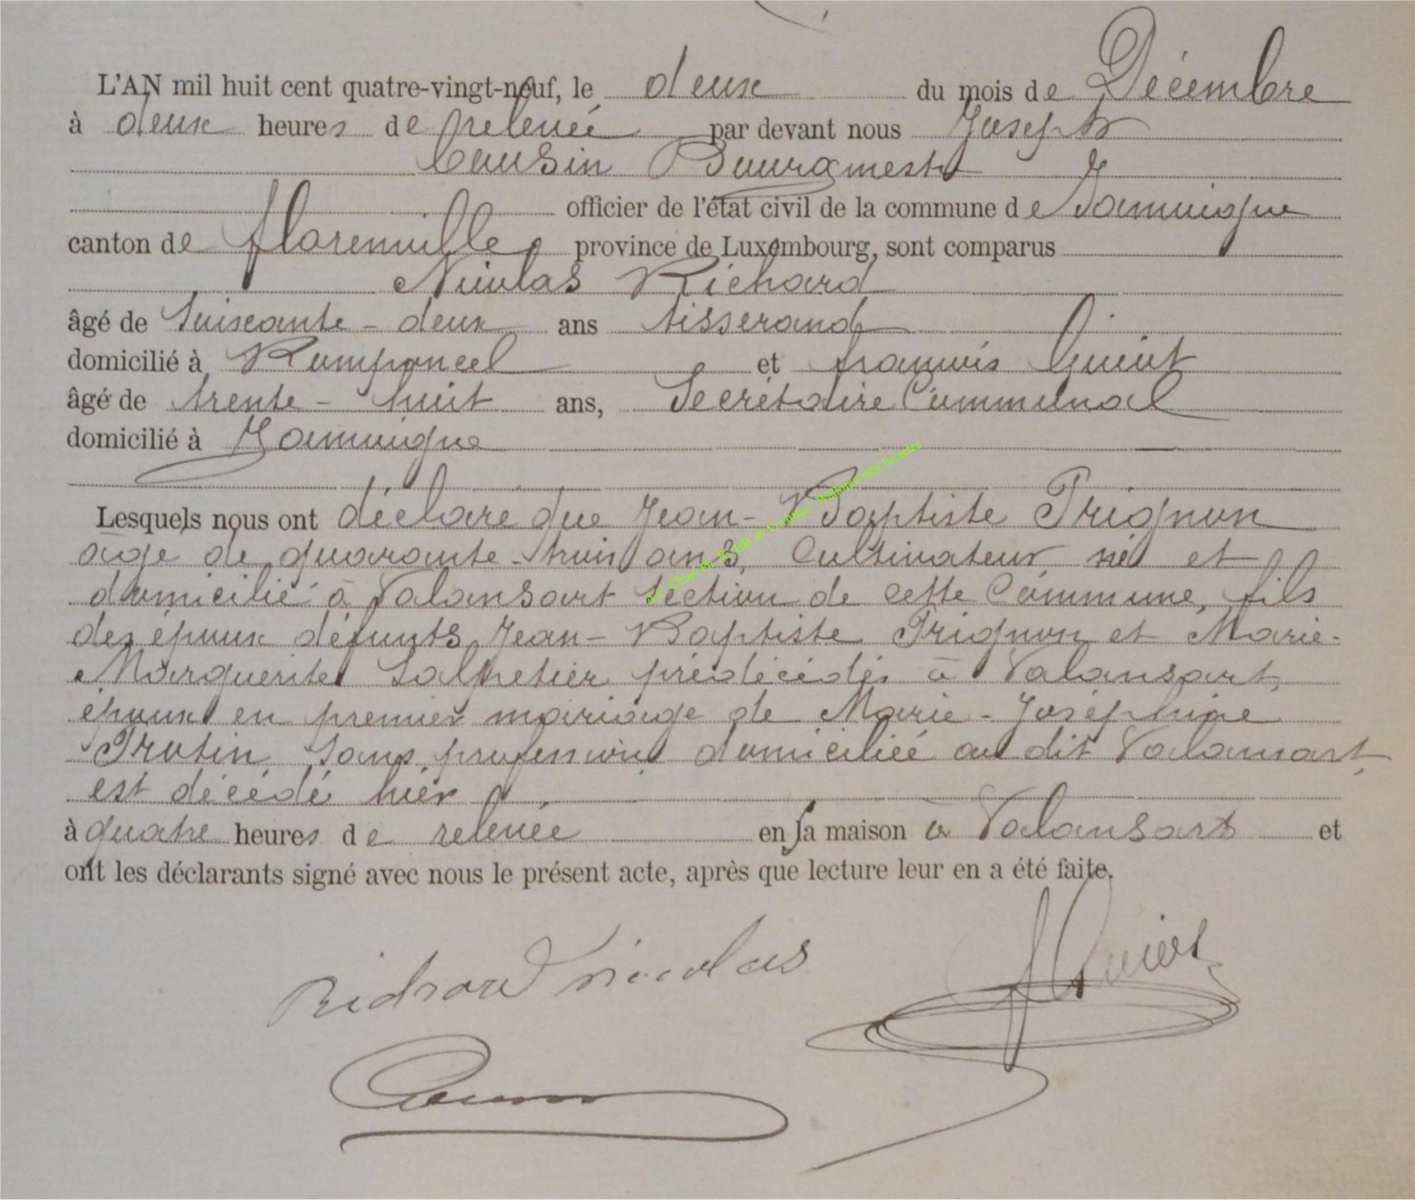 L'AN mil huit cent quatre-vingt-neuf, le deux du mois de Décembre
à deux heures de relevée par devant nous Joseph
Cousin Bourgmestre
officier de l'état civil de la commune de Jamoigne
canton de florenville, province de Luxembourg, sont comparus
Nicolas Richard
âgé de Soixante-deux ans tisserand
domicilié à Romponcel et françois Guiot
âgé de trente-huit ans, Secrétaire Communal
domicilié à Jamoigne
Lesquels nous ont déclaré que Jean-Baptiste Prignon
âgé de quarante-trois ans, Cultivateur né et
domicilié à Valansart section de cette Commune, fils
des époux défunts Jean-Baptiste Prignon et Marie-
Marguerite Salpetier prédécédés à Valansart,
époux en premier mariage de Marie-Joséphine
Protin sans profession domiciliée au dit Valansart,
est décédé hier
à quatre heures de relevée en sa maison à Valansart et
ont les déclarants signé avec nous le présent acte, après que lecture leur en a été faite.
Richard nicolas
f Guiot
Cousin